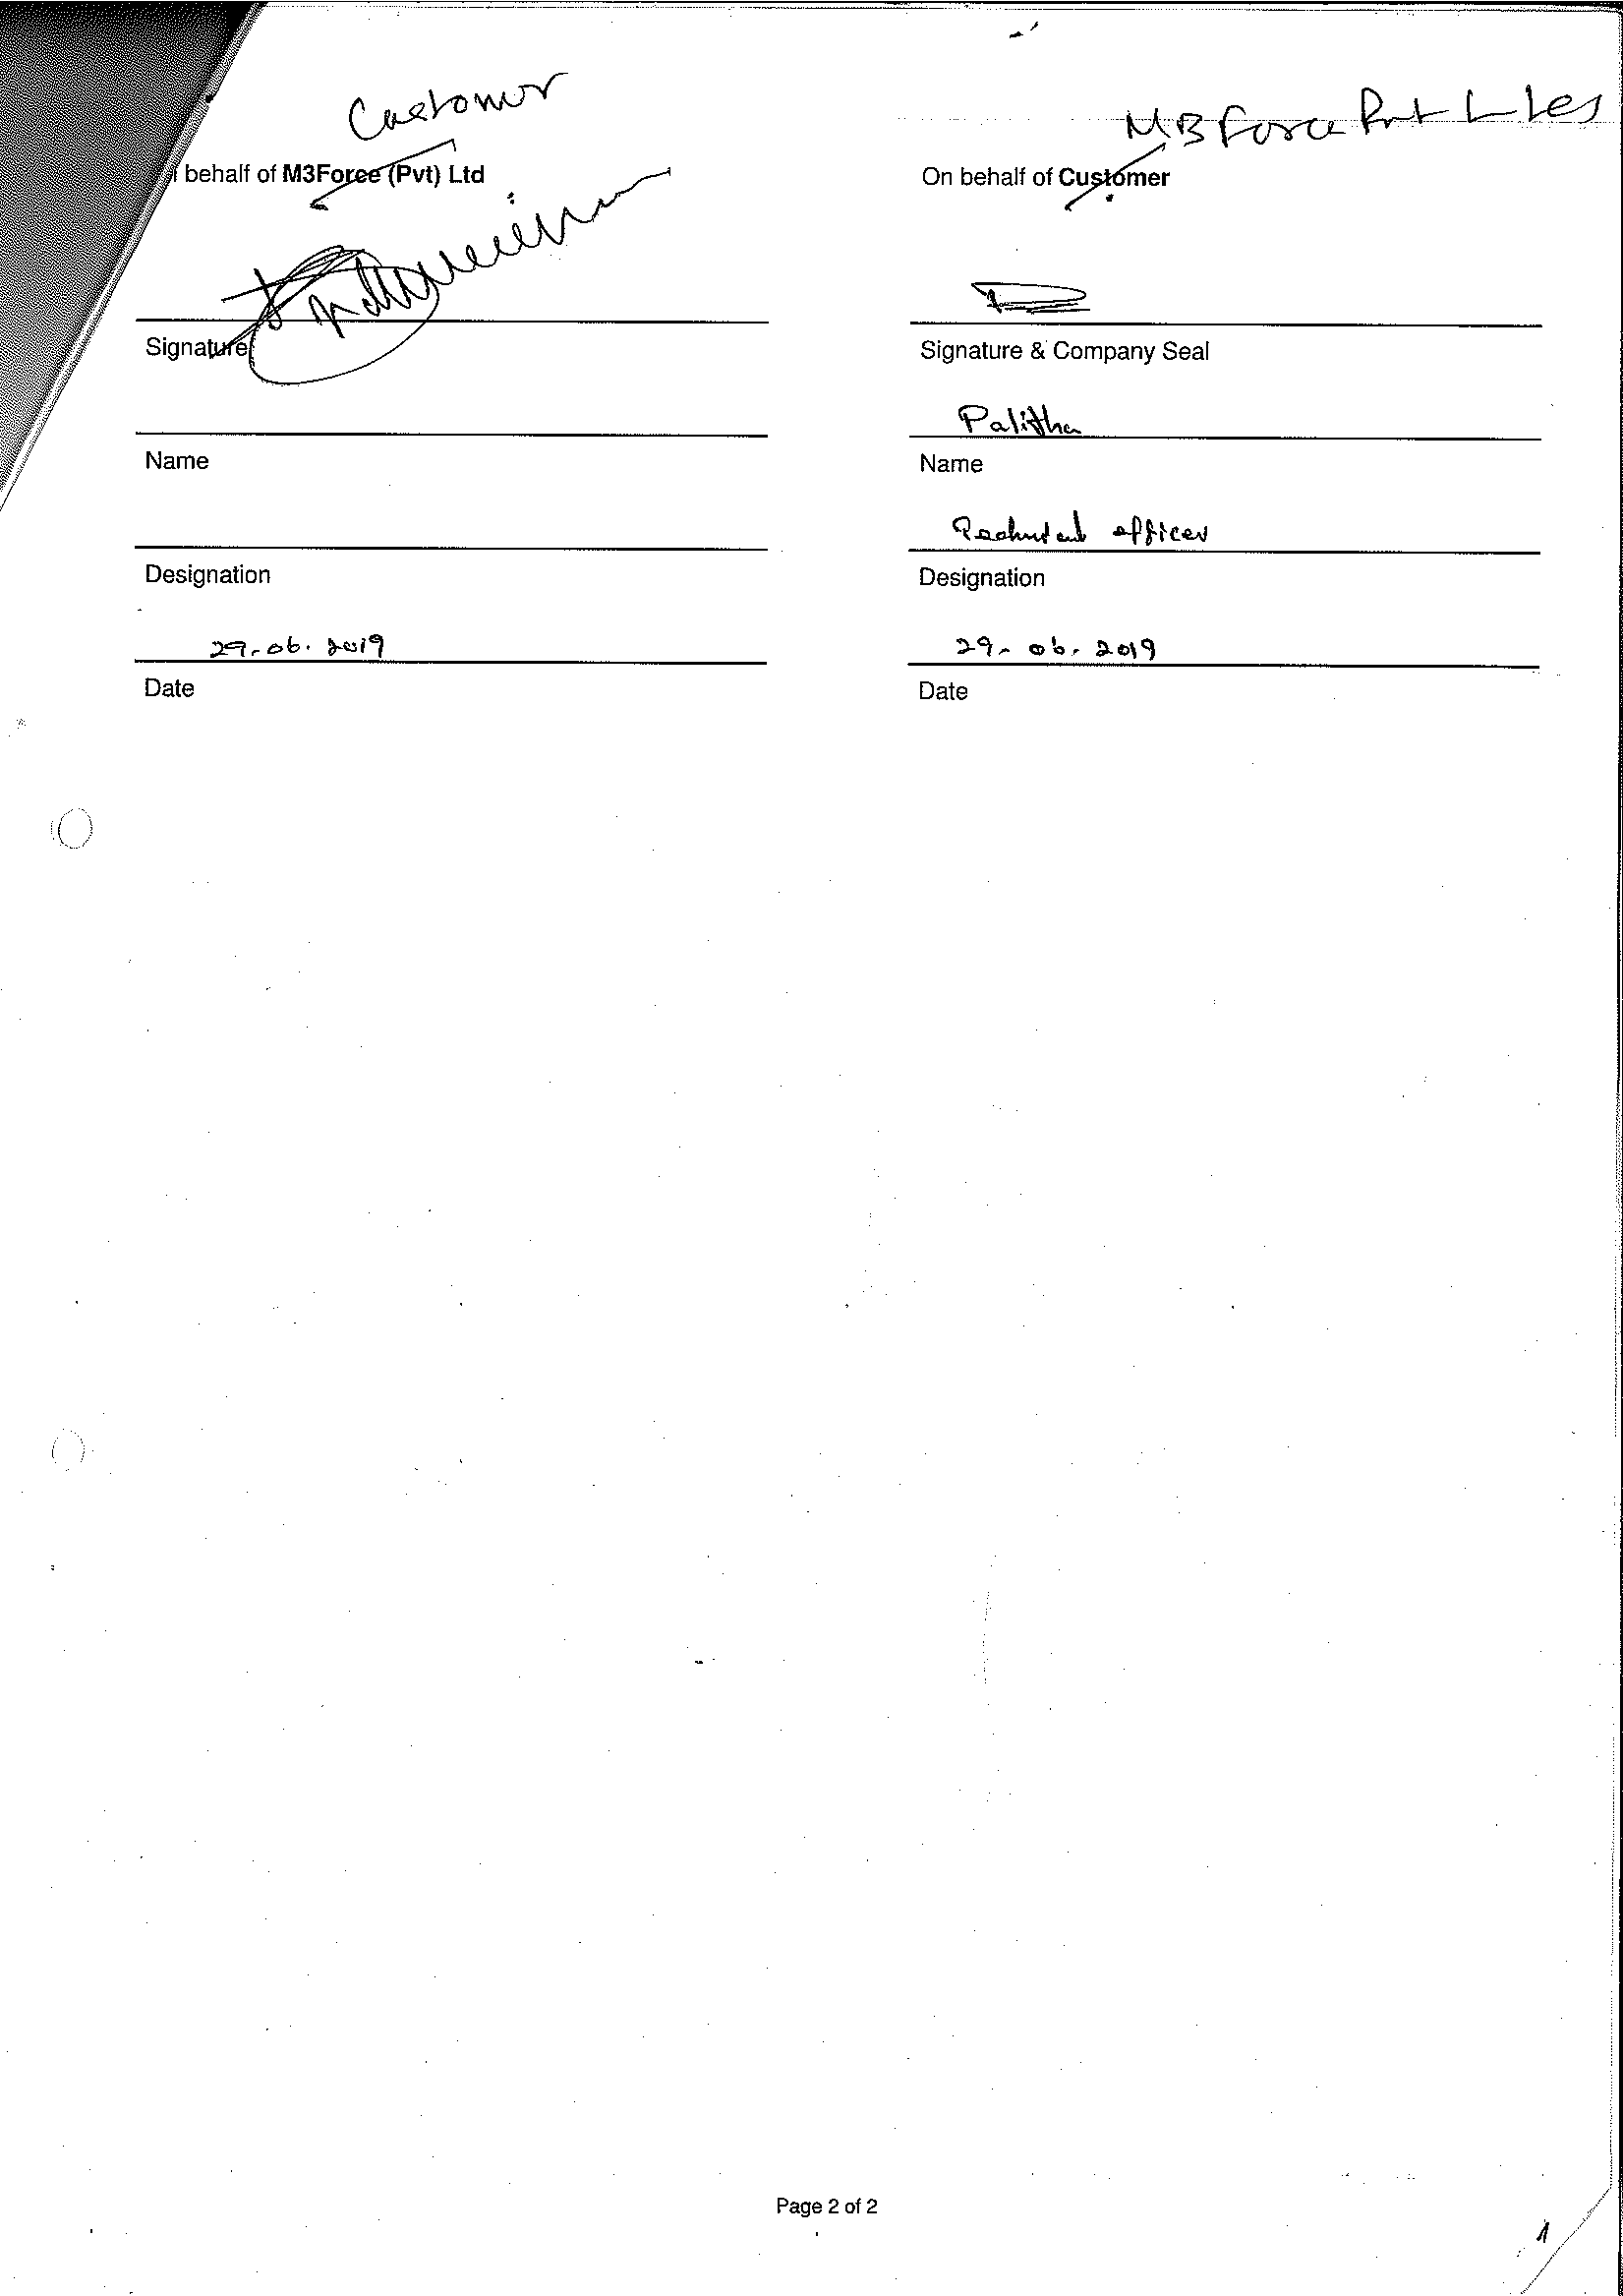 Customer
behalf of M3Force (Pvt) Ltd
Signature
Name
Designation
29.06.2019
Date
M3 Force Pvt
On behalf of Customer
Signature & Company Seal
Palitha
Name
Technical officer
Designation
29.06.2019
Date
Page 2 of 2
1